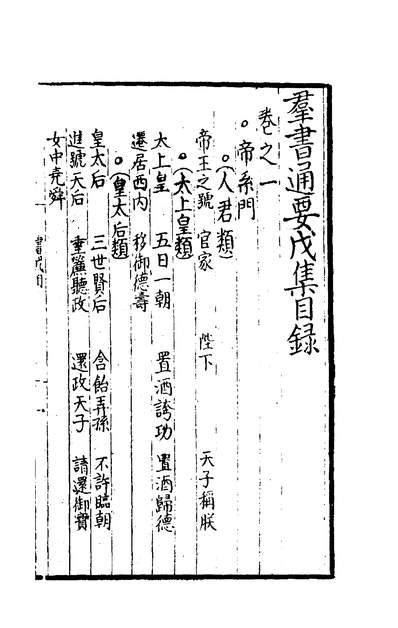 羣書通要戊集目録
卷之一
。帝系門
。(人君類)
帝王之號 官家 陛下 天子稱朕
。(太上皇類)
太上皇 五日一朝 置酒誇功 置酒歸德
遷居西内 移御德壽
。(皇太后類)
皇太后 三世賢后 含飴弄孫 不許臨朝
進號天后 垂簾聽政 還政天子 請還御寶
女中堯舜